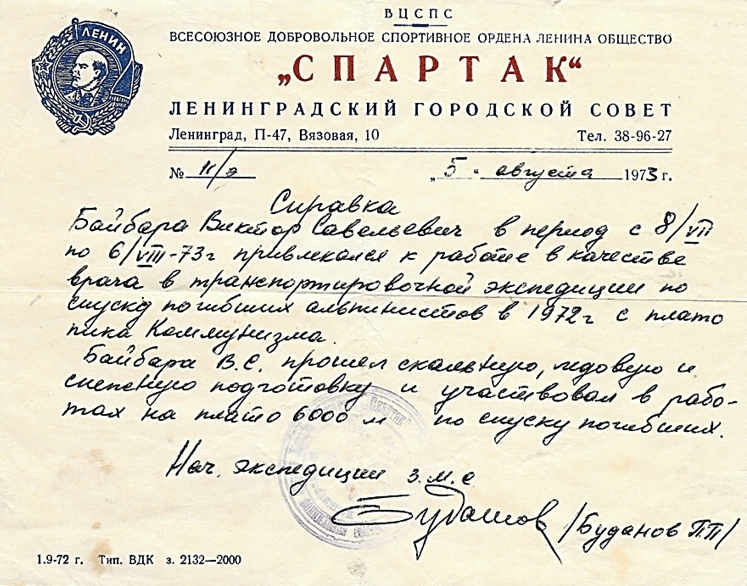 ВЦСПС
ВСЕСОЮЗНОЕ ДОБРОВОЛЬНОЕ СПОРТИВНОЕ ОРДЕНА ЛЕНИНА ОБЩЕСТВО
ЛЕНИН
„СПАРТАК“
ЛЕНИНГРАДСКИЙ ГОРОДСКОЙ СОВЕТ
Ленинград, П-47, Вязовая, 10 Тел. 38-96-27
№ 11/э „5“ августа 1973 г.
Справка
Байбара Виктор Савельевич в период с 8/VII
по 6/VIII-73г привлекался к работе в качестве
врача в транспортировочной экспедиции по
спуску погибших альпинистов в 1972г с плато
пика Коммунизма.
Байбара В.С. прошел скальную, ледовую и
снежную подготовку и участвовал в рабо-
тах на плато 6000 м по спуску погибших.
Нач. экспедиции з.м.с
/Буданов П.П/
1.9-72 г. Тип. ВДК з. 2132—2000